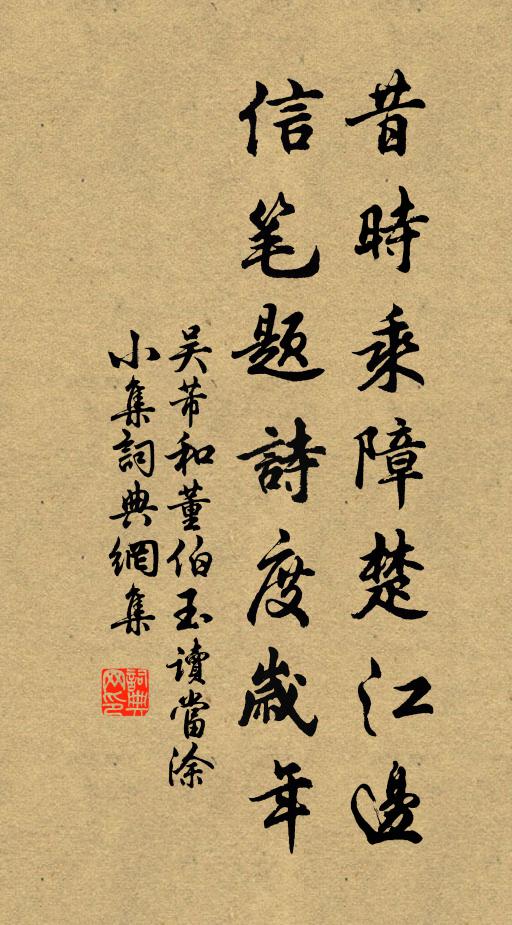 昔時乘障楚江邊
信笔题詩度歲年
吴芾和董伯玉讀當涂
小集詞典網集
詞典网印